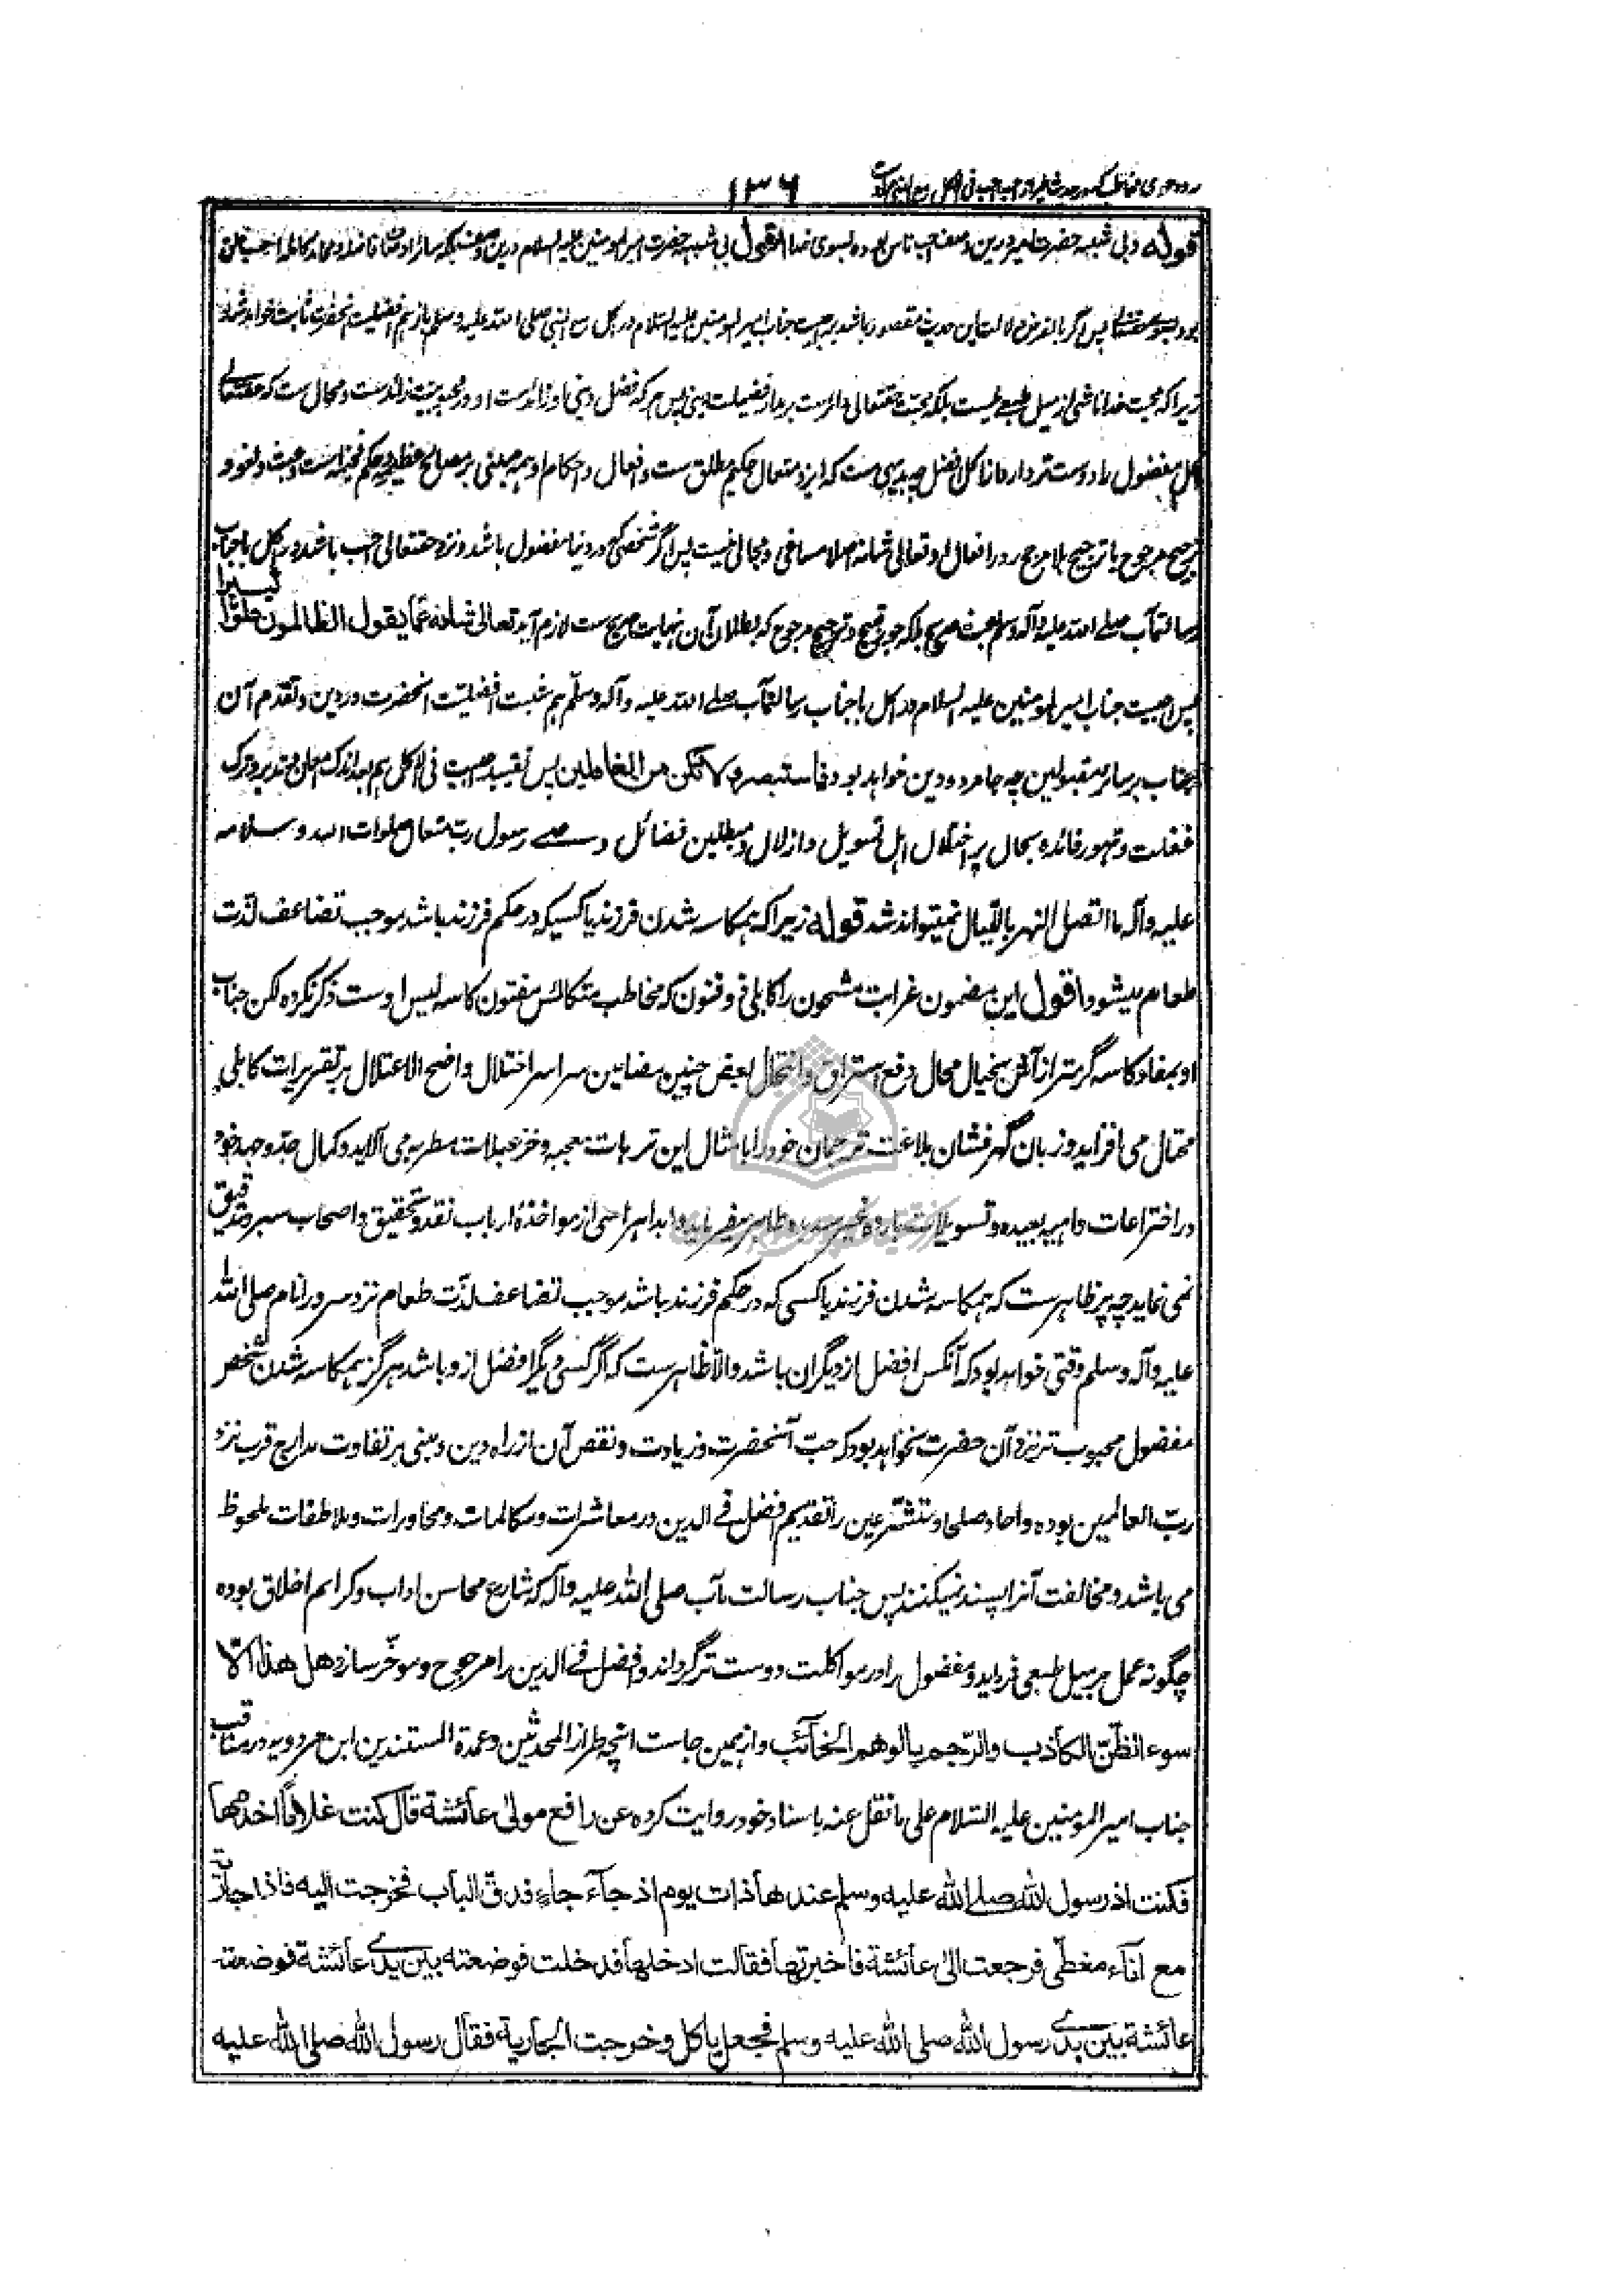 ۱۳۶
قوله و بی شبهه حضرت امیر درین وصف احب ناس بوده بسوی خدا اقول بی شبهه حضرت امیرالمومنین علیه السلام درین وصف بلکه سائر اوصاف فاضله و محامد کامله احب خلق
بود بسوی حقتعالی پس اگر بالفرض دلالت این حدیث مقصور باشد بر احبیت جناب امیرالمومنین علیه السلام در اکل مع النبی صلی الله علیه وسلم باز هم افضلیت آنحضرت ثابت خواهد شد
زیرا که محبت خدا ناشی از میل طبعی نیست بلکه محبت حقتعالی دائرست بر مدار فضیلت دینی پس هر که فضل دینی او زائدست او در محبوبیت زائدست و محال ست که حقتعالی
اکل مفضول را دوست تر دارد از اکل افضل چه بدیهی ست که ایزد متعال حکیم مطلق ست و افعال و احکام او همه مبنی بر مصالح عظیمه و حکم فخیمه است و عبث و لغو و
ترجیح مرجوح یا ترجیح بلا مرجح را در افعال او تعالی شانه اصلا مساغی و مجالی نیست پس اگر شخصی که در دنیا مفضول باشد و نزد حقتعالی احب باشد در اکل با جناب
رسالتمآب صلی الله علیه و آله وسلم عبث صریح بلکه جور قبیح و ترجیح مرجوح که بطلان آن نهایت صریح ست لازم آید تعالی شانه عما یقول الظالمون علوّا کبیرا
پس احبیت جناب امیرالمومنین علیه السلام در اکل با جناب رسالتمآب صلی الله علیه و آله وسلّم هم مثبت افضلیّت آنحضرت در دین و تقدم آن
جناب بر سائر مقبولین چه جا مردودین خواهد بود فاستبصر ولا تکن من الغافلین پس تقیید احبیت فی الاکل هم بعد اندک امعان و تدبر و ترک
غفلت و تهور فائده بحال پر اختلال اهل تسویل و ازلال و مبطلین فضائل وصی رسول ربّ متعال صلوات الله و سلامه
علیه و آله ما اتصل النهر باللیال نمیتواند شد قوله زیرا که همکاسه شدن فرزند یا کسیکه در حکم فرزند باشد موجب تضاعف لذّت
طعام میشود اقول این مضمون غرابت مشحون را کابلی ذو فنون که مخاطب متکائس مفتون کاسه لیس اوست ذکر نکرده لکن جناب
او بمفاد کاسه گرمتر از آش بخیال محال دفع استراق و انتحال بعض چنین مضامین سراسر اختلال واضح الاعتلال بر تقریرات کابلی
محتال می افزاید و زبان گهرفشان بلاغت ترجمان خود را بامثال این ترهات معجبه و خزعبلات مطربه می آلاید و کمال جدّ و جهد خود
در اختراعات واهیه بعیده و تسویلات بارده غیر سدیده ظاهر میفرماید و ابدا هراسی از مواخذهٔ ارباب نقد و تحقیق و اصحاب سبر و تدقیق
نمی نماید چه پر ظاهرست که همکاسه شدن فرزند یا کسی که در حکم فرزند باشد موجب تضاعف لذّت طعام نزد سرور انام صلی الله
علیه و آله وسلم وقتی خواهد بود که آنکس افضل از دیگران باشد و الا ظاهرست که اگر کسی دیگر افضل ازو باشد هرگز همکاسه شدن شخص
مفضول محبوب تر نزد آن حضرت نخواهد بود که حبّ آنحضرت و زیادت و نقص آن از راه دین و مبنی بر تفاوت مدارج قرب نزد
ربّ العالمین بوده و احاد صلحا و متشرّعین را تقدیم افضل فی الدین در معاشرات و مکالمات و محاورات و ملاطفات ملحوظ
می باشد و مخالفت آنرا پسند نمیکنند پس جناب رسالت مآب صلی الله علیه و آله که شارع محاسن اداب و کرائم اخلاق بوده
چگونه عمل بر میل طبعی فرماید و مفضول را در مواکلت دوست تر گرداند و افضل فی الدین را مرجوح و موخّر سازد هل هذا الّا
سوء الظنّ الکاذب والرّجم بالوهم الخائب و از همین جاست آنچه طراز المحدثین و عمدة المستندین ابن مردویه در مناقب
جناب امیرالمومنین علیه السّلام علی ما نقل عنه باسناد خود روایت کرده عن رافع مولی عائشة قال کنت غلاماً اخدمها
فکنت اذ رسول الله صلی الله علیه وسلم عندها ذات یوم اذ جآء جاءٍ فدقّ الباب فخرجت الیه فاذا جاریة
مع انآء مغطّی فرجعت الی عائشة فاخبرتها فقالت ادخلها فدخلت فوضعته بین یدی عائشة فوضعته
عائشة بین یدی رسول الله صلی الله علیه وسلم فجعل یاکل و خرجت الجاریة فقال رسول الله صلی الله علیه